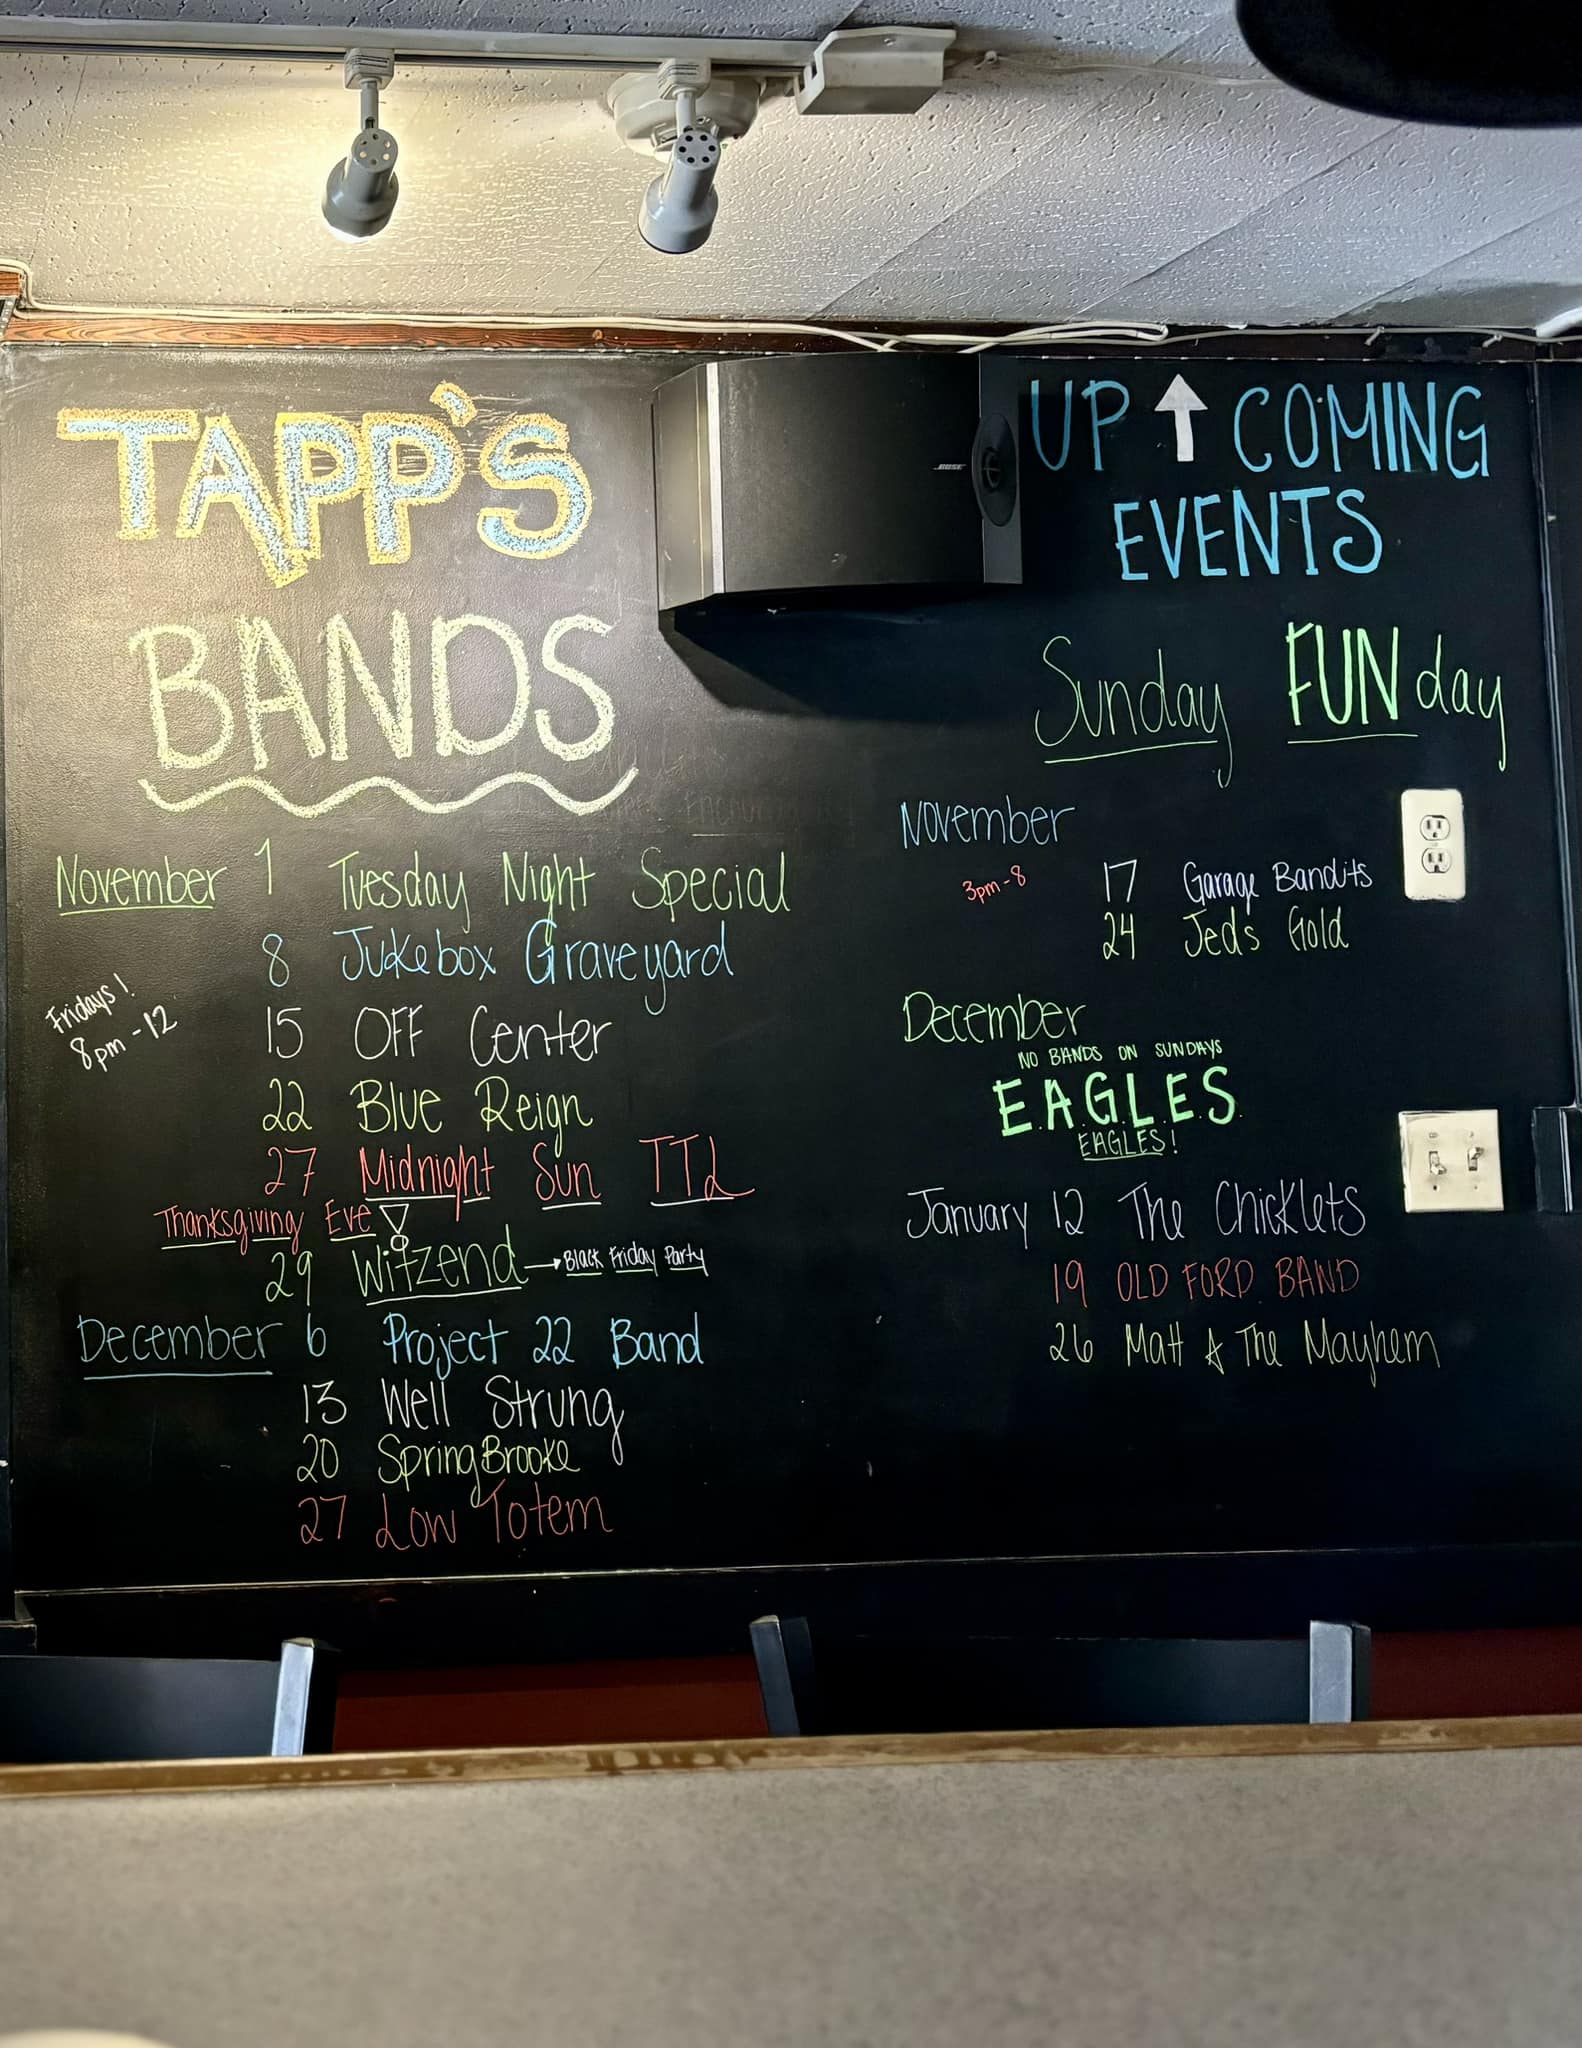 TAPP'S
BANDS
November 1 Tuesday Night Special
8 Jukebox Graveyard
Fridays!
8pm-12
15 OFF Center
22 Blue Reign
27 Midnight Sun TTL
Thanksgiving Eve
29 Witzend → Black Friday Party
December 6 Project 22 Band
13 Well Strung
20 SpringBrooke
27 Low Totem
BOSE
UP ↑ COMING
EVENTS
Sunday FUNday
November
3pm-8
17 Garage Bandits
24 Jeds Gold
December
NO BANDS ON SUNDAYS
E.A.G.L.E.S.
EAGLES!
January 12 The Chicklets
19 OLD FORD BAND
26 Matt & The Mayhem